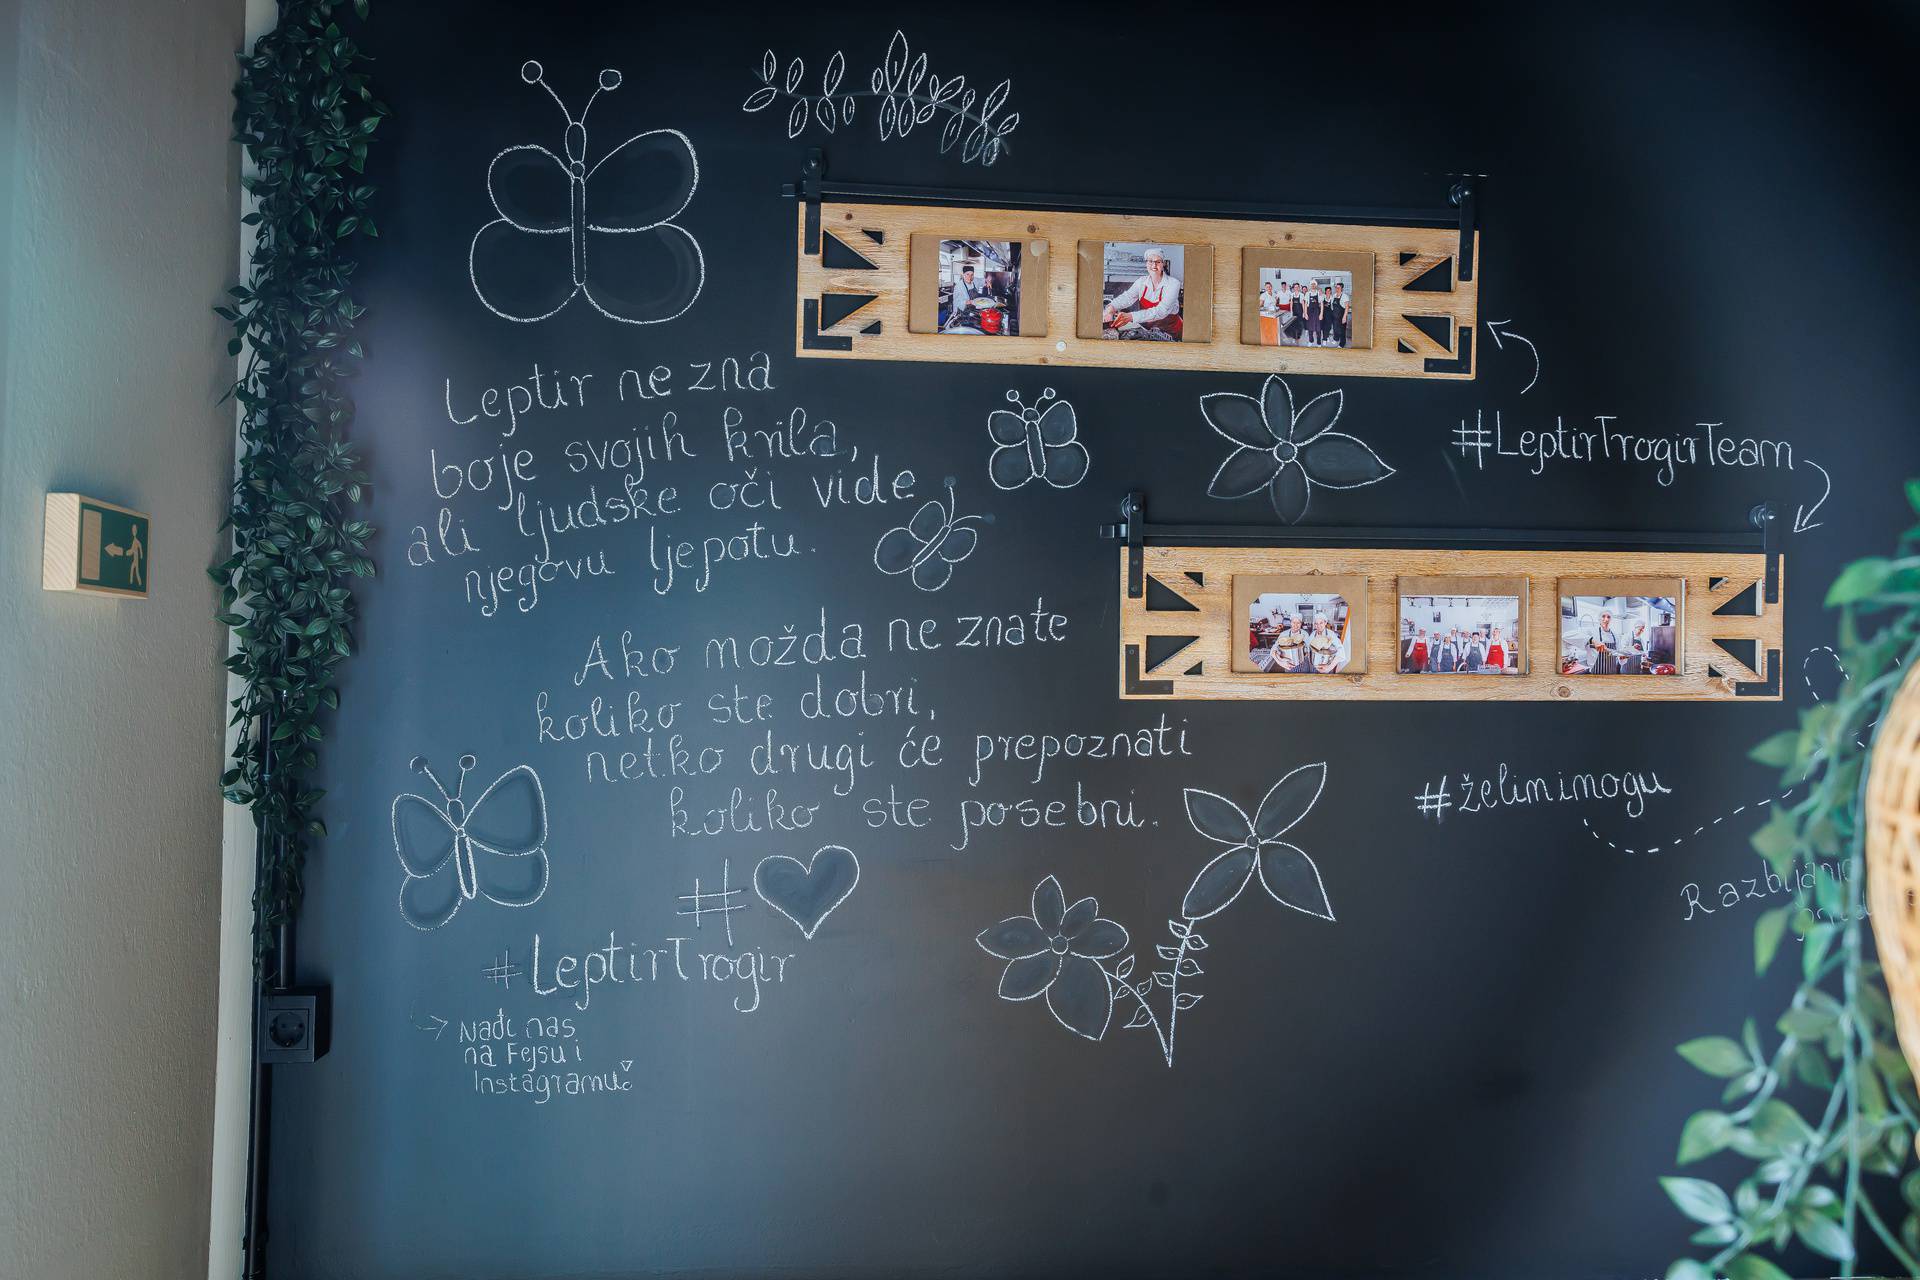 Leptir ne zna
boje svojih krila,
ali ljudske oči vide
njegovu ljepotu.
Ako možda ne znate
koliko ste dobri,
netko drugi će prepoznati
koliko ste posebni.
#
#LeptirTrogir
Nađi nas
na Fejsu i
Instagramu
#LeptirTrogirTeam
#želimimogu